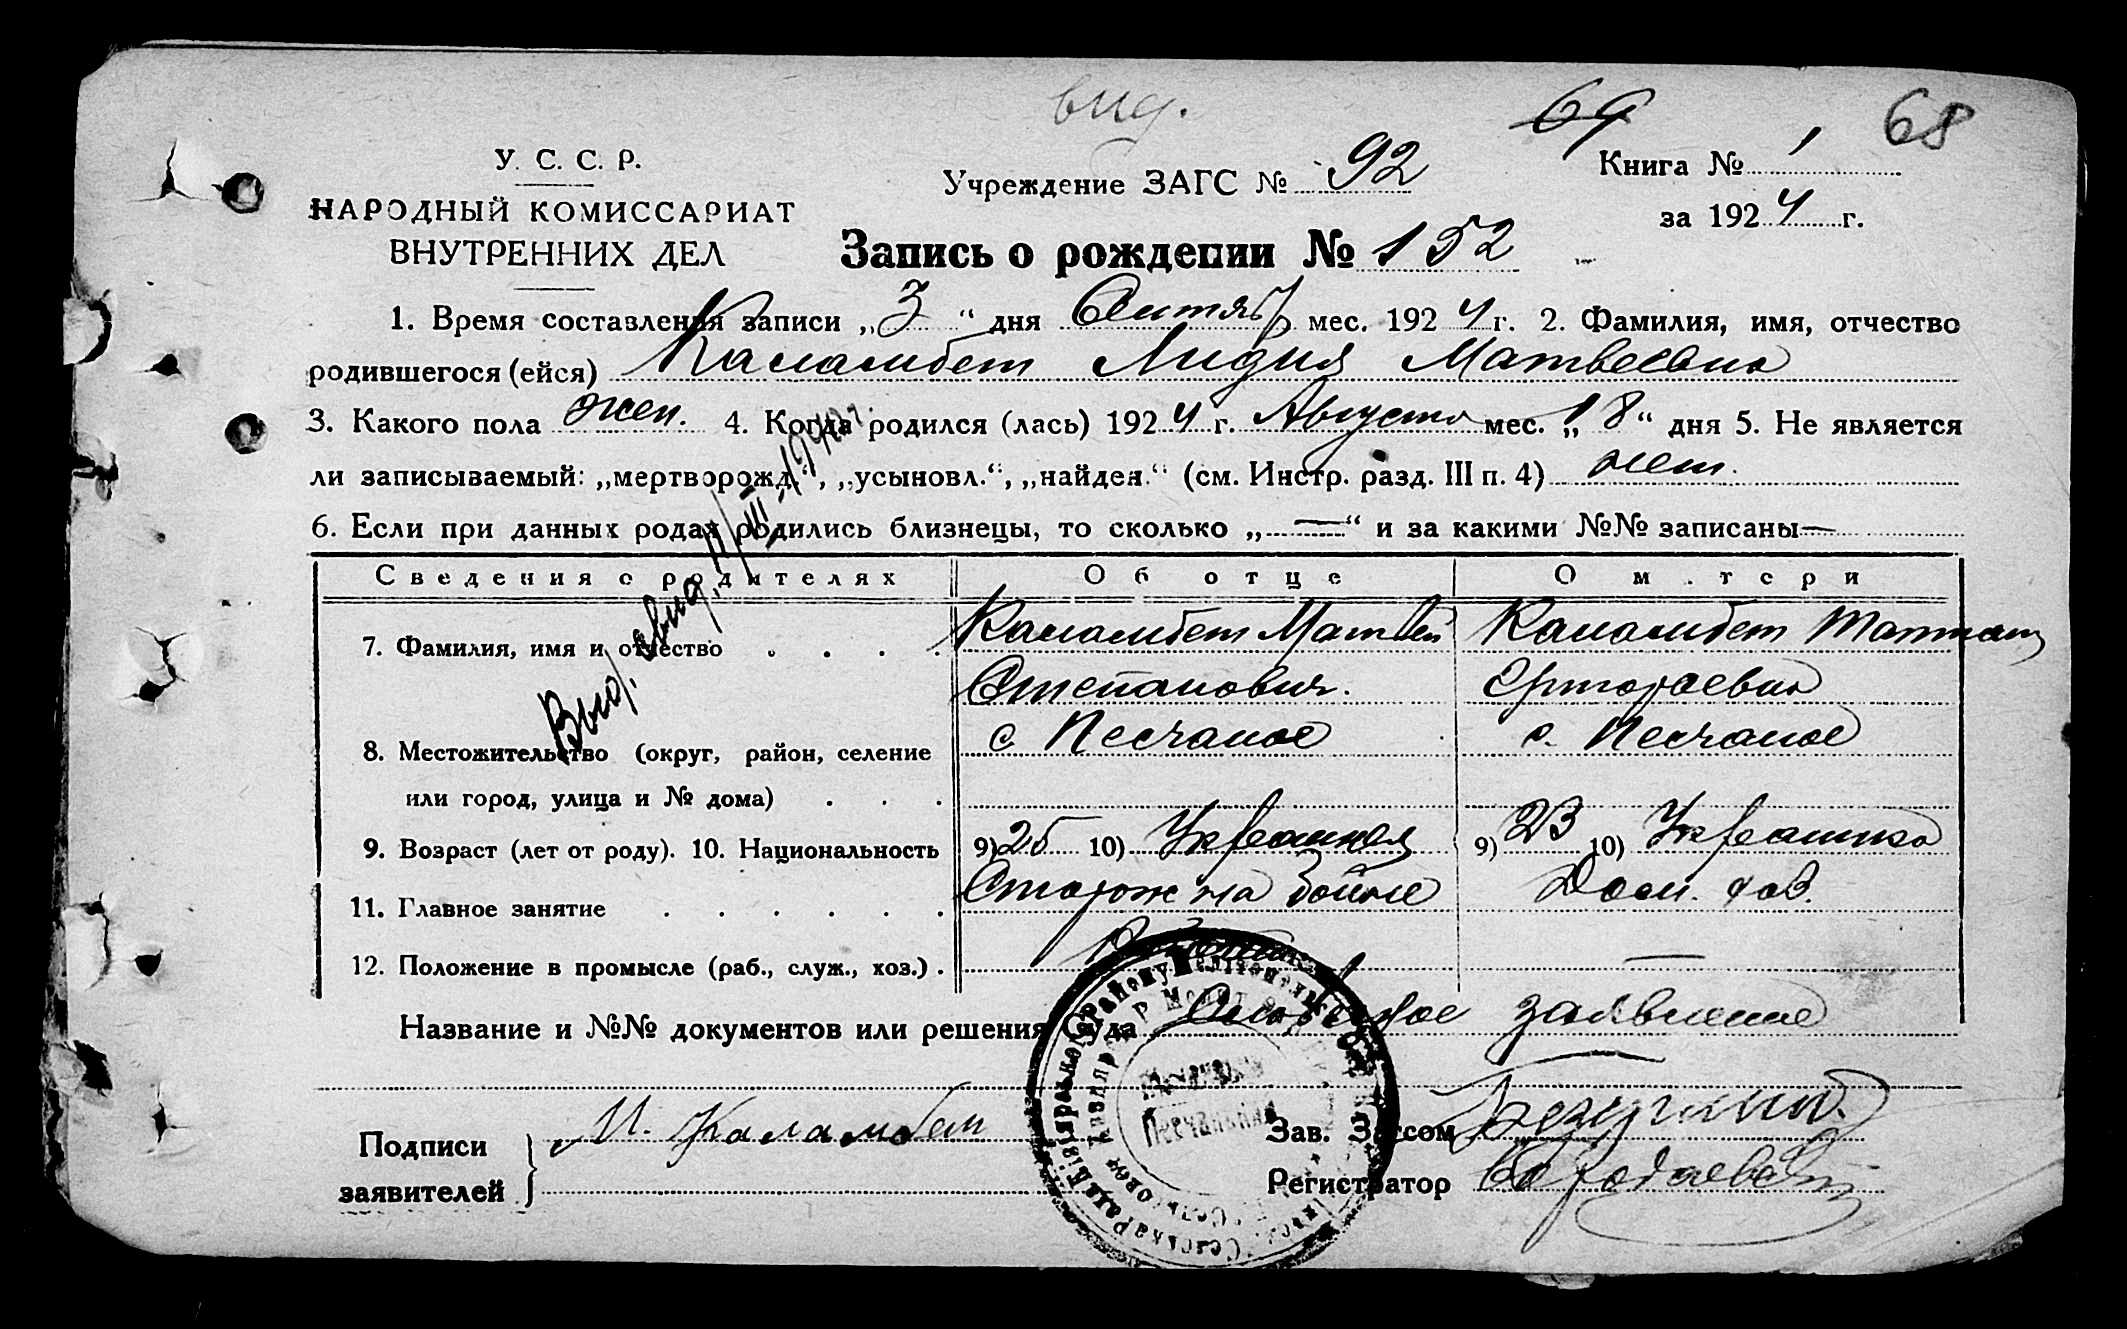 вид.
69 68
У. С. С. Р.
НАРОДНЫЙ КОМИССАРИАТ
ВНУТРЕННИХ ДЕЛ
Учреждение ЗАГС № 92
Книга № 1
за 1924 г.
Запись о рождении № 152
1. Время составления записи „3“ дня Сентяб мес. 1924 г. 2. Фамилия, имя, отчество
родившегося (ейся) Каламбет Лидия Матвеевна
3. Какого пола жен. 4. Когда родился (лась) 1924 г. Августа мес. „18“ дня 5. Не является
ли записываемый: „мертворожд.“, „усыновл.“, „найден.“ (см. Инстр. разд. III п. 4) нет.
6. Если при данных родах родились близнецы, то сколько „—“ и за какими №№ записаны —
Выд. свид. 11/III-1940г.
Сведения о родителях Об отце О матери
7. Фамилия, имя и отчество . . . . Каламбет Матвей Каламбет Татиан
Степанович. Григораевна
8. Местожительство (округ, район, селение с Песчаное с. Песчаное
или город, улица и № дома) . . .
9. Возраст (лет от роду). 10. Национальность 9) 25 10) Украинец 9) 23 10) Украинка
11. Главное занятие . . . . . . Сторож на бойне Дом. хоз.
12. Положение в промысле (раб., служ., хоз.) . —
Название и №№ документов или решения суда Словесное заявление
Подписи заявителей М. Каламбет
Зав. Загсом
Регистратор
Песчанский